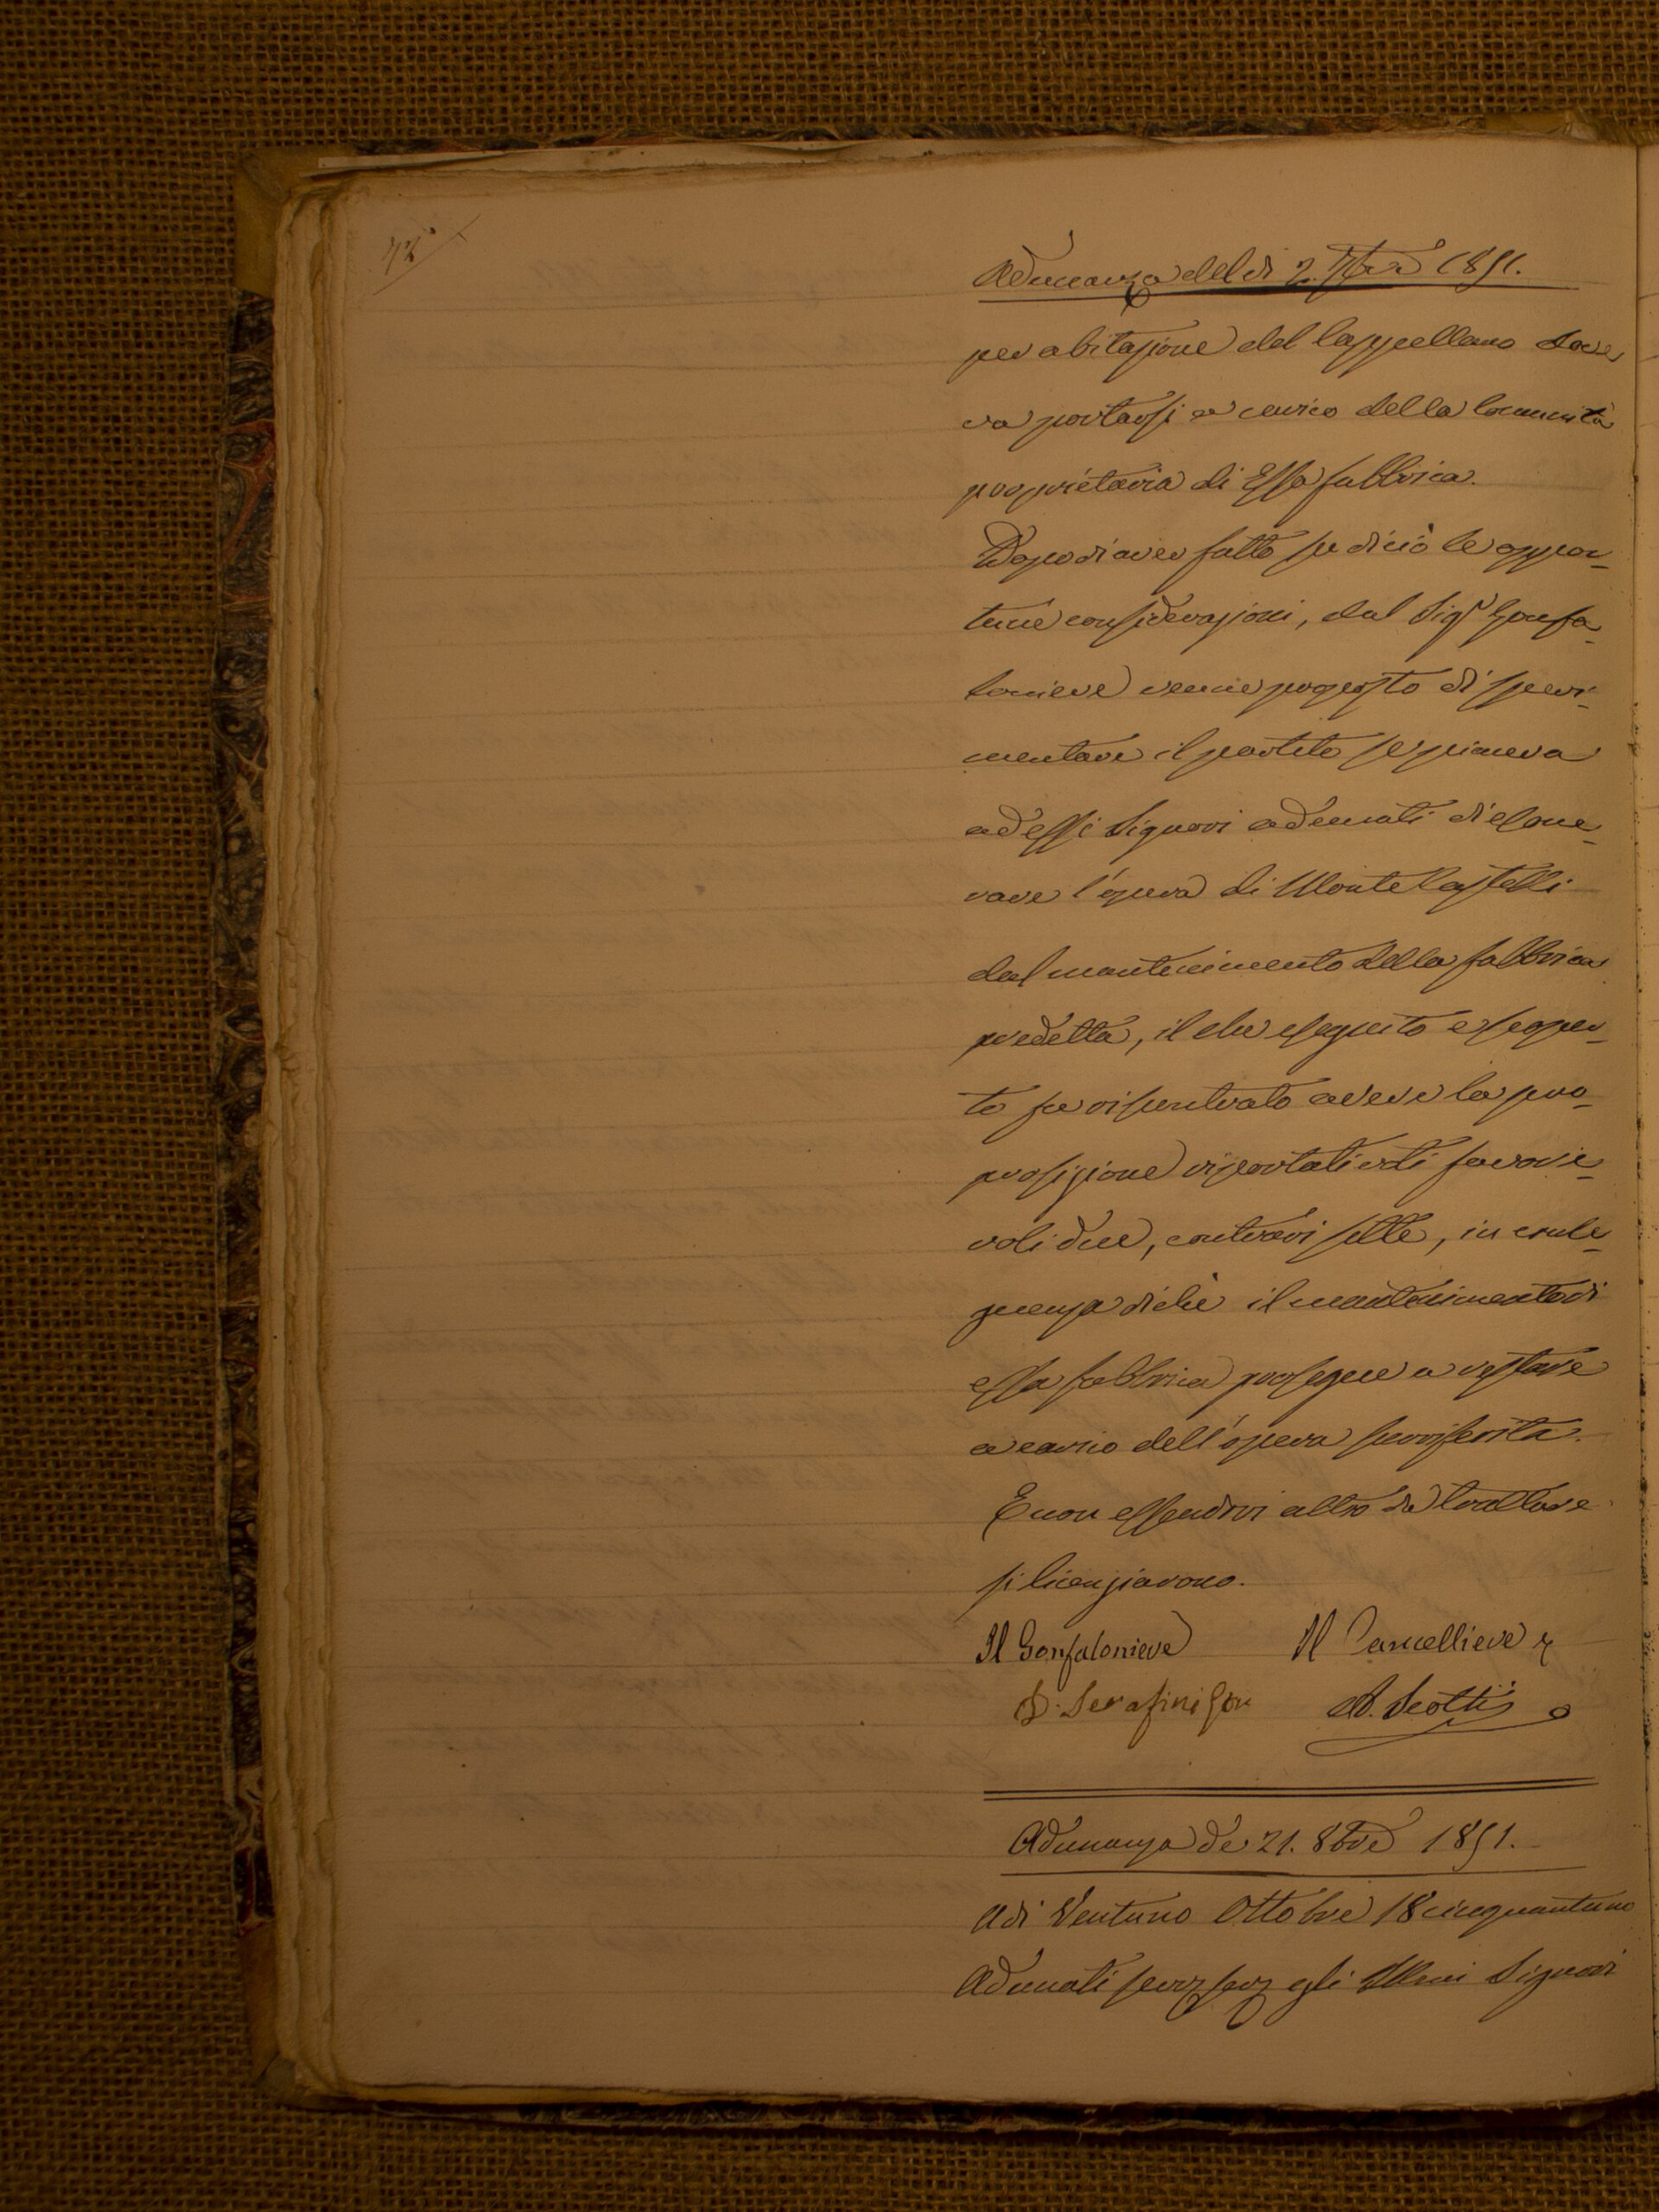 Adunanza del dì 2. 7bre 1851.
per abitazione del Cappellano dove
va portarsi a carico della Comunità
proprietaria di Essa fabbrica.
Dopo di aver fatto su di ciò le oppor_
tune considerazioni, dal Sigr Gonfa_
loniere venne proposto di speri_
mentare il partito se piaceva
ad essi Signori adunati di esone_
rare l'opera di Monte Castelli
dal mantenimento della fabbrica
predetta, il che eseguito e scoper_
to fu riscontrato avere la pro_
posizione riportati voti favore_
voli due, contrari sette, in conse_
guenza di che il mantenimento di
essa fabbrica prosegue a restare
a carico dell'opera surriferita.
E non essendovi altro da trattare
si licenziarono.
Il Gonfaloniere Il Cancelliere
D. Serafini Gon A. Scotti
Adunanza de 21. 8bre 1851.
Adi Ventuno Ottobre 18cinquantuno
Adunati serv serv gli Illmi Signori